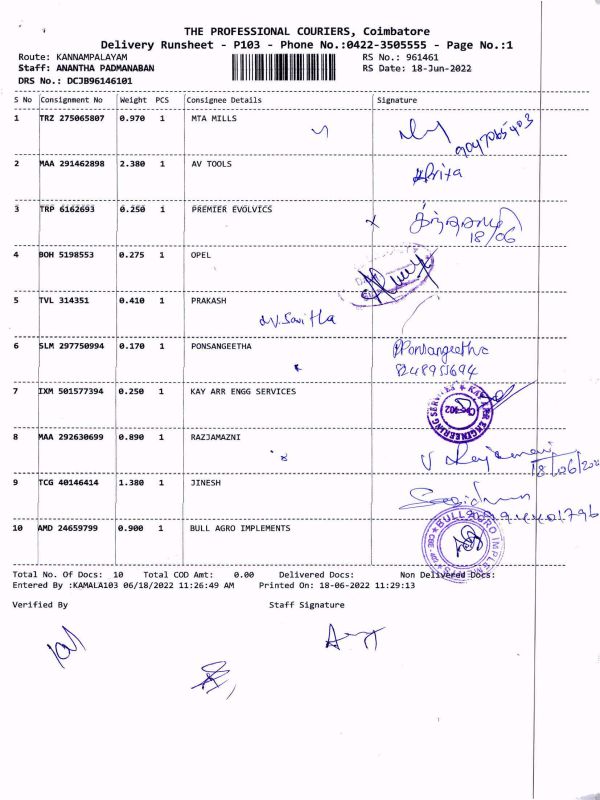 THE PROFESSIONAL COURIERS, Coimbatore
Delivery Runsheet - P103 - Phone No.:0422-3505555 - Page No.:1
Route: KANNAMPALAYAM RS No.: 961461
Staff: ANANTHA PADMANABAN RS Date: 18-Jun-2022
DRS No.: DCJB96146101
S No Consignment No Weight PCS Consignee Details Signature
1 TRZ 275065807 0.970 1 MTA MILLS
2 MAA 291462898 2.380 1 AV TOOLS Priya
3 TRP 6162693 0.250 1 PREMIER EVOLVICS
18/06
4 BOH 5198553 0.275 1 OPEL
5 TVL 314351 0.410 1 PRAKASH
V. Savitha
6 SLM 297750994 0.170 1 PONSANGEETHA P Ponsangeetha
7 IXM 501577394 0.250 1 KAY ARR ENGG SERVICES
8 MAA 292630699 0.890 1 RAZJAMAZNI
V Rajamani
9 TCG 40146414 1.380 1 JINESH
10 AMD 24659799 0.900 1 BULL AGRO IMPLEMENTS BULL AGRO IMPLEMENTS
Total No. Of Docs: 10 Total COD Amt: 0.00 Delivered Docs: Non Delivered Docs:
Entered By :KAMALA103 06/18/2022 11:26:49 AM Printed On: 18-06-2022 11:29:13
Verified By Staff Signature